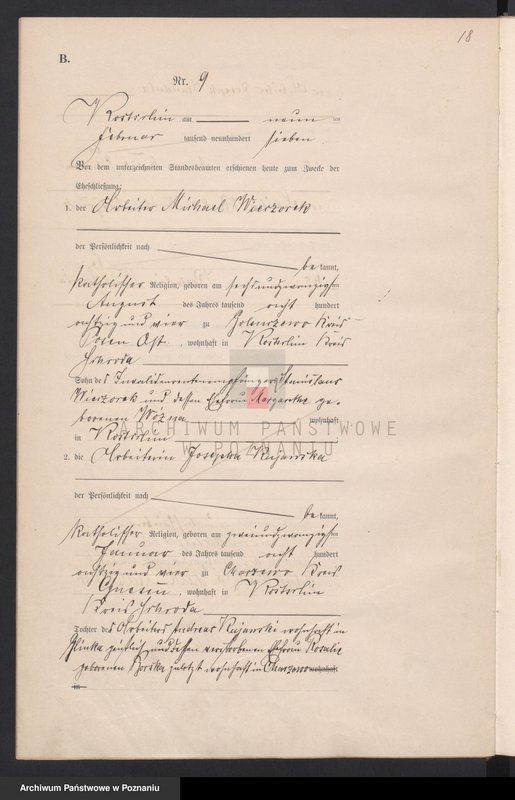 18
B.
Nr. 9
Kostschin am neun ten
Februar tausend neunhundert sieben
Vor dem unterzeichneten Standesbeamten erschienen heute zum Zwecke der
Eheschließung:
1. der Arbeiter Michael Wierzorek
der Persönlichkeit nach
be kannt,
katholischer Religion, geboren am sechsundzwanzigsten
August des Jahres tausend acht hundert
achtzig und vier zu Kreis
Posen Ost, wohnhaft in Kostschin Kreis
Schroda
Sohn des Invalidenrentenempfängers Stanislaus
Wierzorek und dessen Ehefrau Margarethe ge-
borenen Wozna wohnhaft
in Kostschin
ARCHIWUM PAŃSTWOWE
W POZNANIU
2. die Arbeiterin Josepha Kujawska
der Persönlichkeit nach
be kannt,
katholischer Religion, geboren am zweiundzwanzigsten
Januar des Jahres tausend acht hundert
achtzig und vier zu Charzewo Kreis
Gnesen, wohnhaft in Kostschin
Kreis Schroda
Tochter des Arbeiters Andreas Kujawski wohnhaft in
Glinka und dessen verstorbenen Ehefrau Rosalie
geborenen zuletzt wohnhaft in Charzewo wohnhaft
in
Archiwum Państwowe w Poznaniu